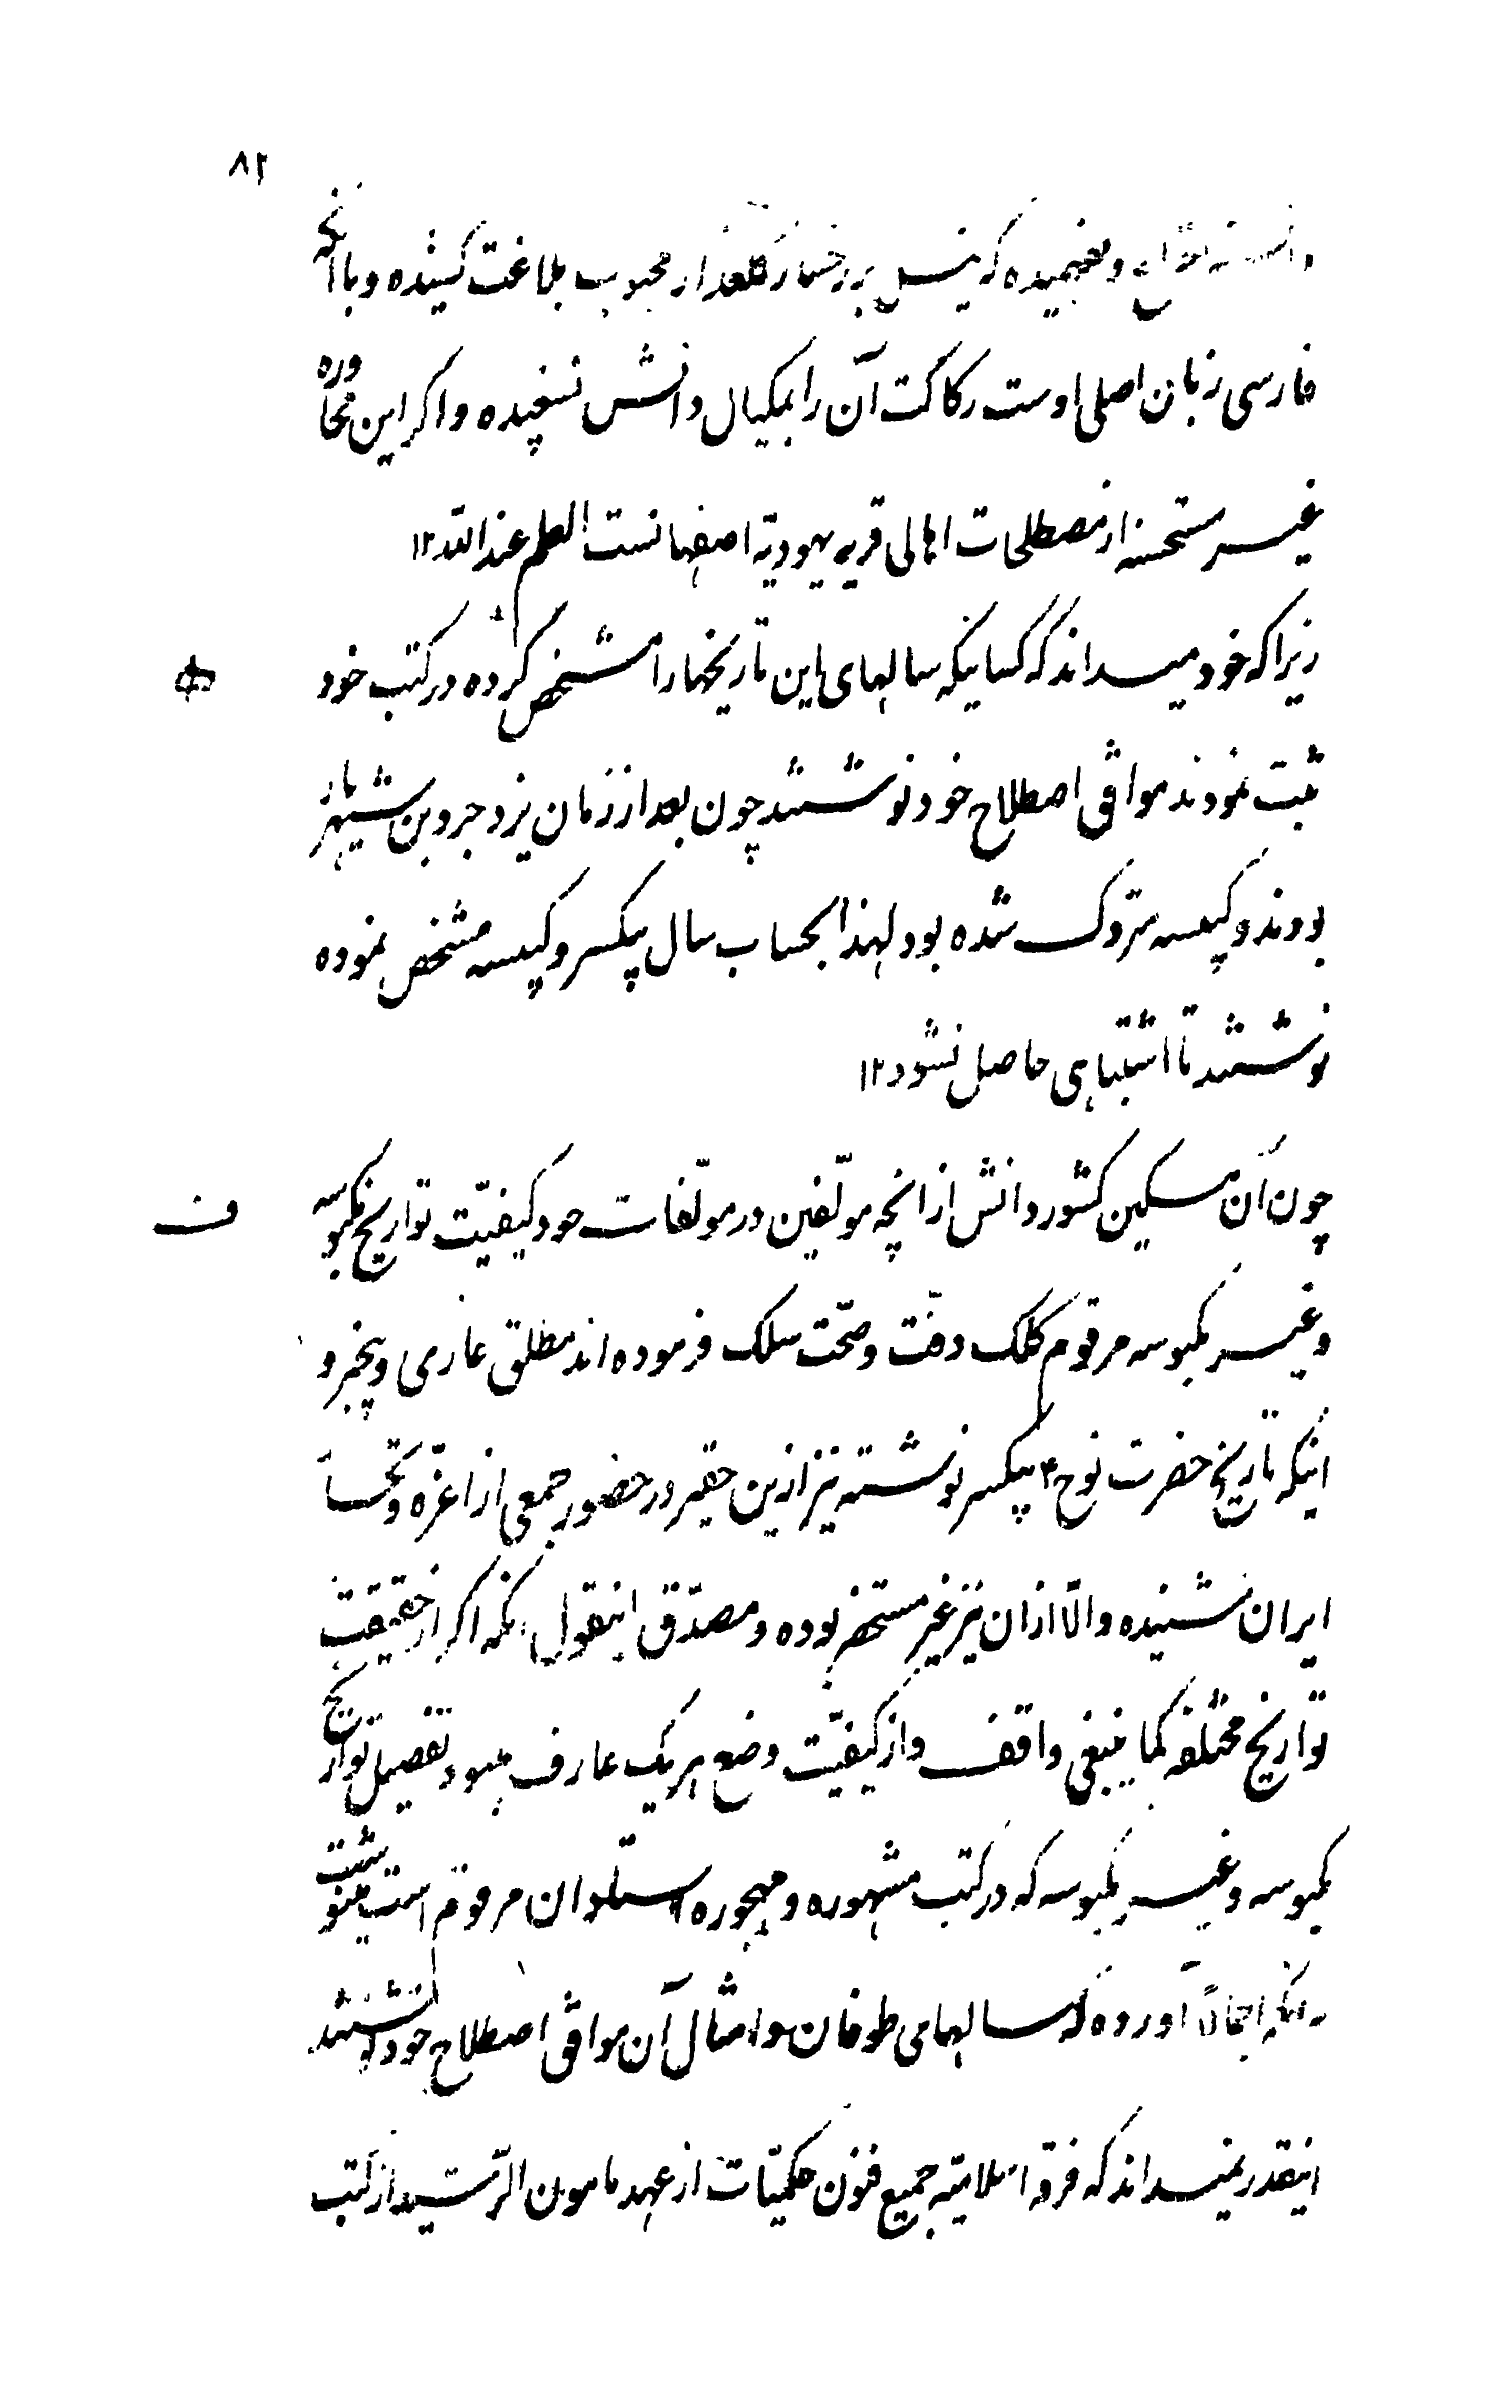 ۸۲
و نفهمیده که نیل بر رخسار گلعذار محبوب بلاغت کشیده و با آنچه
فارسی زبان اصلی اوست رکاکت آن را بمکیال دانش نسنجیده و اگر این محاوره
غیر مستحسنه از مصطلحات اهالی قریه یهودیّه اصفهانست العلم عند اللّه ۱۲
زیرا که خود میداند که کسانیکه سالهای این تاریخها را مشخص کرده در کتب خود
ثبت نمودند موافق اصطلاح خود نوشتند چون بعد از زمان یزدجرد بن شهریار
بودند و کبیسه متروک شده بود لهذا بحساب سال بیکسر و کبیسه مشخص نموده
نوشتند تا اشتباهی حاصل نشود ۱۲
چون آن مسکین کشور دانش از انچه مولّفین در مولّفات خود کیفیّت تواریخ مکبوسه
و غیر مکبوسه مرقوم کلک دقّت و صحّت سلک فرموده اند مطلق عاری و بیخبر و
اینکه تاریخ حضرت نوح ۴ بیکسر نوشته نیز ازین حقیر در حضور جمعی از اعزّه و نجبا
ایران شنیده و الّا ازان نیز غیر مستحضر بوده و مصدّق اینقول اینکه اگر از حقیقت
تواریخ مختلفه کما ینبغی واقف و از کیفیّت وضع هر یک عارف میبود تفصیل تواریخ
مکبوسه و غیر مکبوسه که در کتب مشهوره و مهجوره استادان مرقوم است مینوشت
نه اینکه اجمالاً آورده که سالهای طوفان و امثال آن موافق اصطلاح خود نوشتند
اینقدر نمیداند که فرقه اسلامیّه جمیع فنون حکمیّات از عهد مامون الرّشید از کتب
ف